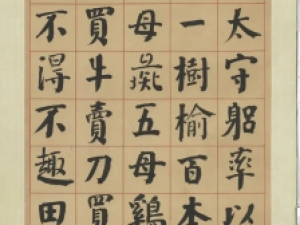 太守躬率以
一樹榆百本
母彘五母鷄
買牛賣刀買
不得不趣田